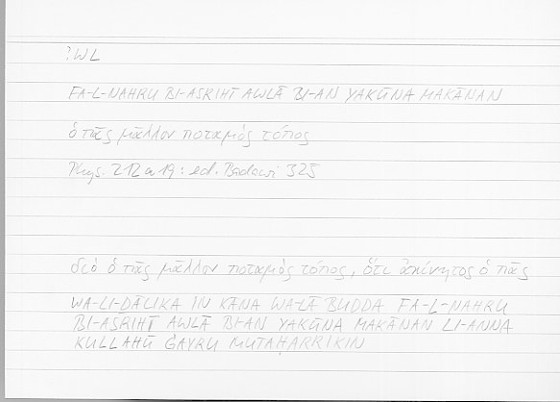 ʔWL
FA-L-NAHRU BI-ASRIHĪ AWLĀ BI-AN YAKŪNA MAKĀNAN
ὁ πᾶς μᾶλλον ποταμὸς τόπος
Phys. 212 a 19 : ed. Badawi 325
διὸ ὁ πᾶς μᾶλλον ποταμὸς τόπος, ὅτι ἀκίνητος ὁ πᾶς
WA-LI-ḎĀLIKA IN KĀNA WA-LĀ BUDDA FA-L-NAHRU
BI-ASRIHĪ AWLĀ BI-AN YAKŪNA MAKĀNAN LI-ANNA
KULLAHŪ ĠAYRU MUTAḤARRIKIN